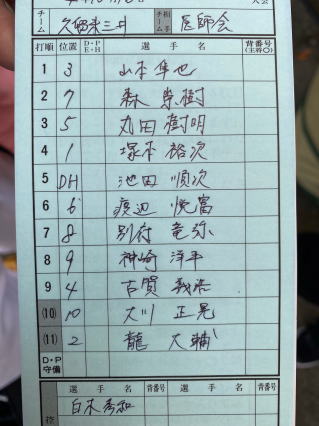 大会
チーム 久留米三井 相手チーム 医師会
打順 位置 D・P E・H 選手名 背番号 (主将○)
1 3 山本 隼也
2 7 森 崇樹
3 5 丸田 樹明
4 1 塚本 裕次
5 DH 池田 順次
6 6 渡辺 悦富
7 8 別府 竜弥
8 9 神崎 洋平
9 4 古賀
(10) 10 大川 正晃
(11) 2 龍 大輔
D・P 守備
控 選手名 背番号 選手名 背番号
白木 秀和